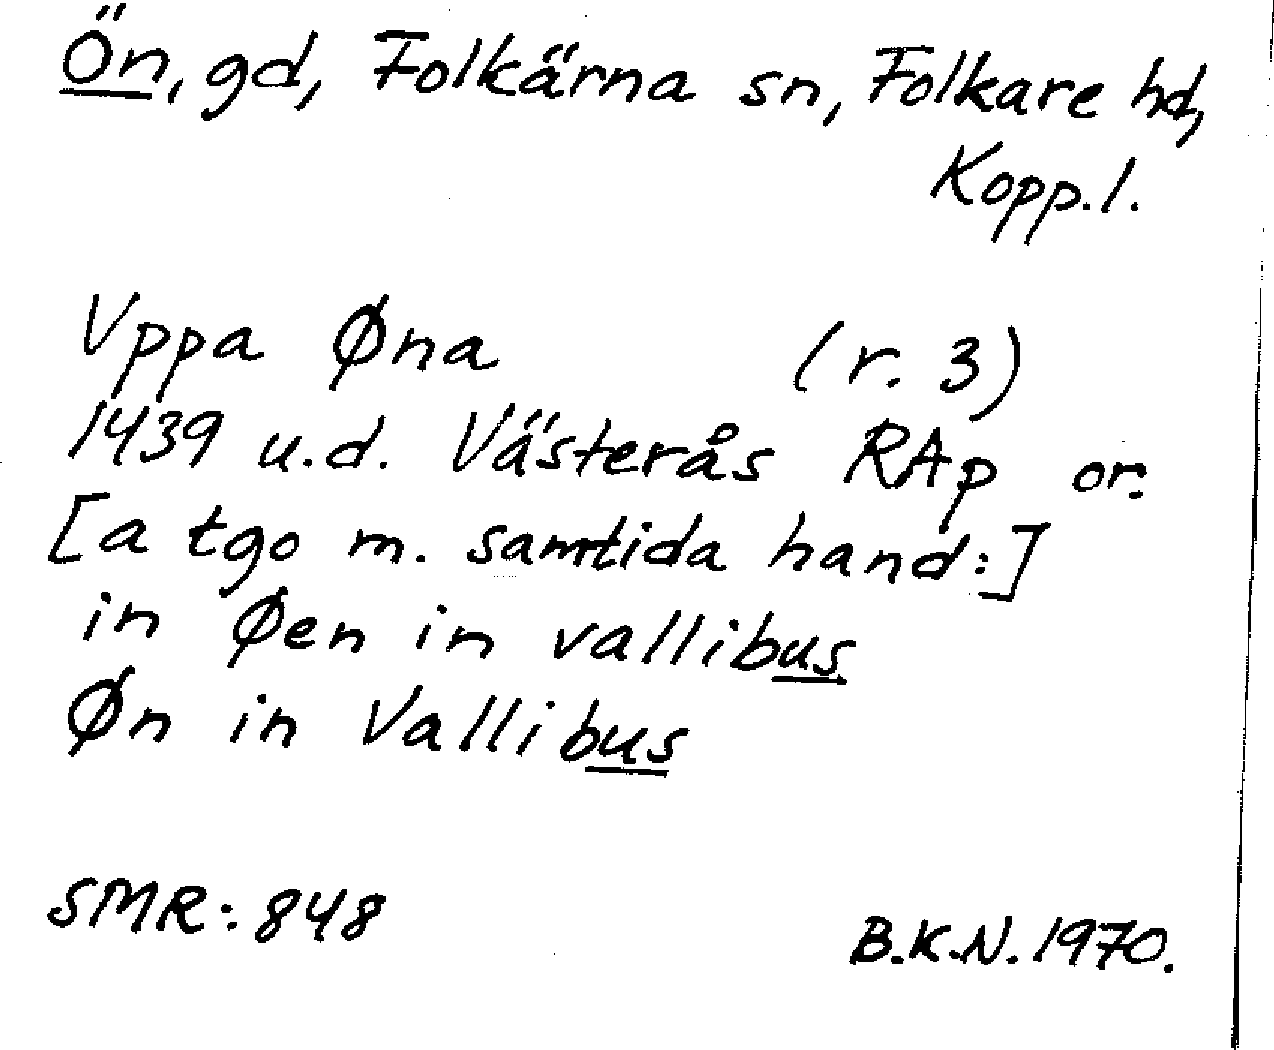 Ön, gd, Folkärna sn, Folkare hd,
Kopp.l.
Vppa Øna (r. 3)
1439 u.d. Västerås RAp or.
[a tgo m. samtida hand:]
in Øen in vallibus
Øn in Vallibus
SMR: 848
B.K.N. 1970.